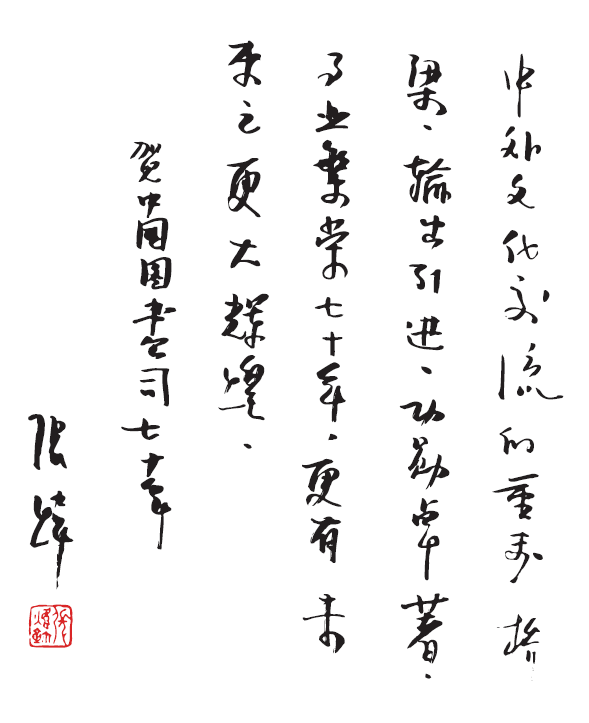 中外文化交流的重要桥
梁、输出引进、功勋卓著、
事业繁荣七十年，更有未
来之更大辉煌、
贺中国图书公司七十年
张